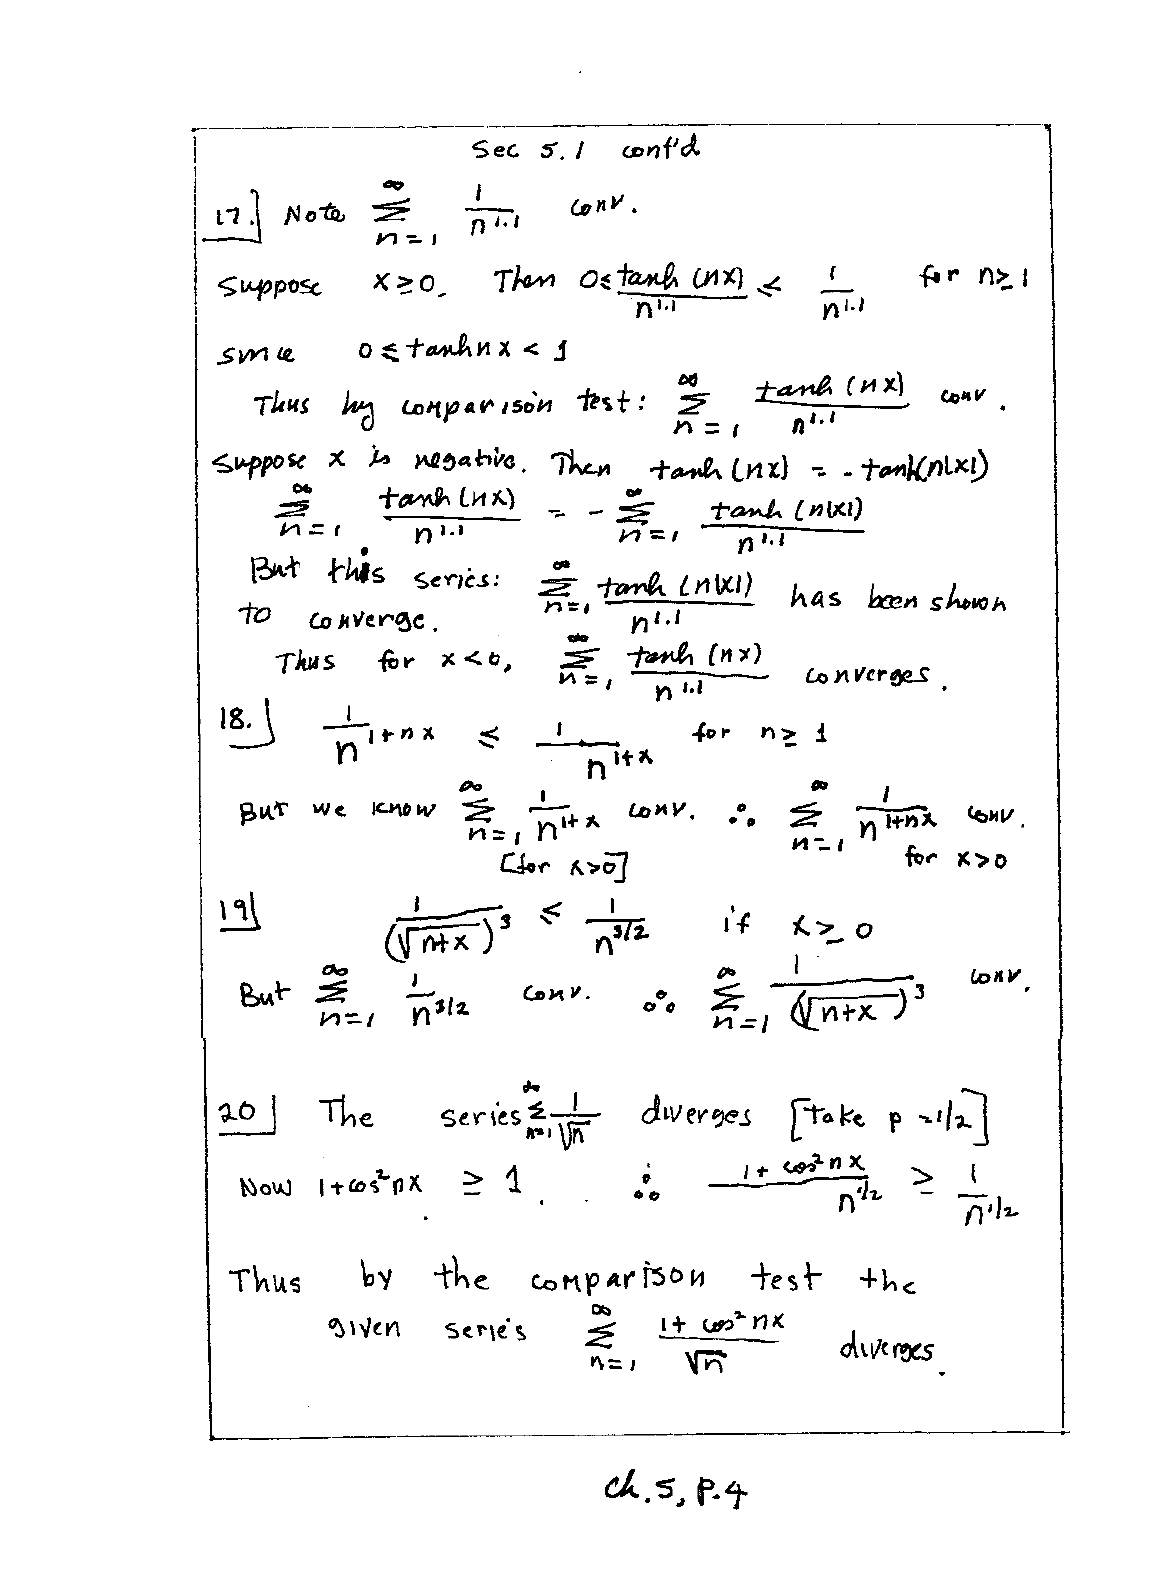 Sec 5.1 cont'd
17. Note ∞∑n=1 1/n^1.1 conv.
Suppose x≥0. Then 0≤ tanh(nx)/n^1.1 ≤ 1/n^1.1 for n≥1
since 0≤tanh nx < 1
Thus by comparison test: ∞∑n=1 tanh(nx)/n^1.1 conv.
Suppose x is negative. Then tanh(nx) = -tanh(n|x|)
∞∑n=1 tanh(nx)/n^1.1 = - ∞∑n=1 tanh(n|x|)/n^1.1
But this series: ∞∑n=1 tanh(n|x|)/n^1.1 has been shown
to converge.
Thus for x<0, ∞∑n=1 tanh(nx)/n^1.1 converges.
18. 1/n^(1+nx) ≤ 1/n^(1+x) for n≥1
But we know ∞∑n=1 1/n^(1+x) conv. ∴ ∞∑n=1 1/n^(1+nx) conv.
[for x>0] for x>0
19 1/(√(n+x))^3 ≤ 1/n^(3/2) if x≥0
But ∞∑n=1 1/n^(3/2) conv. ∴ ∞∑n=1 1/(√(n+x))^3 conv.
20 The series ∞∑n=1 1/√n diverges [Take p=1/2]
Now 1+cos²nx ≥ 1. ∴ (1+cos²nx)/n^(1/2) ≥ 1/n^(1/2)
Thus by the comparison test the
given series ∞∑n=1 (1+cos²nx)/√n diverges.
Ch.5, P.4